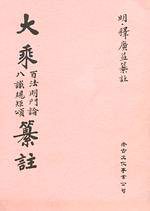 明·釋廣益纂註
大乘
百法明門論
八識規矩頌
纂註
老古文化事業公司